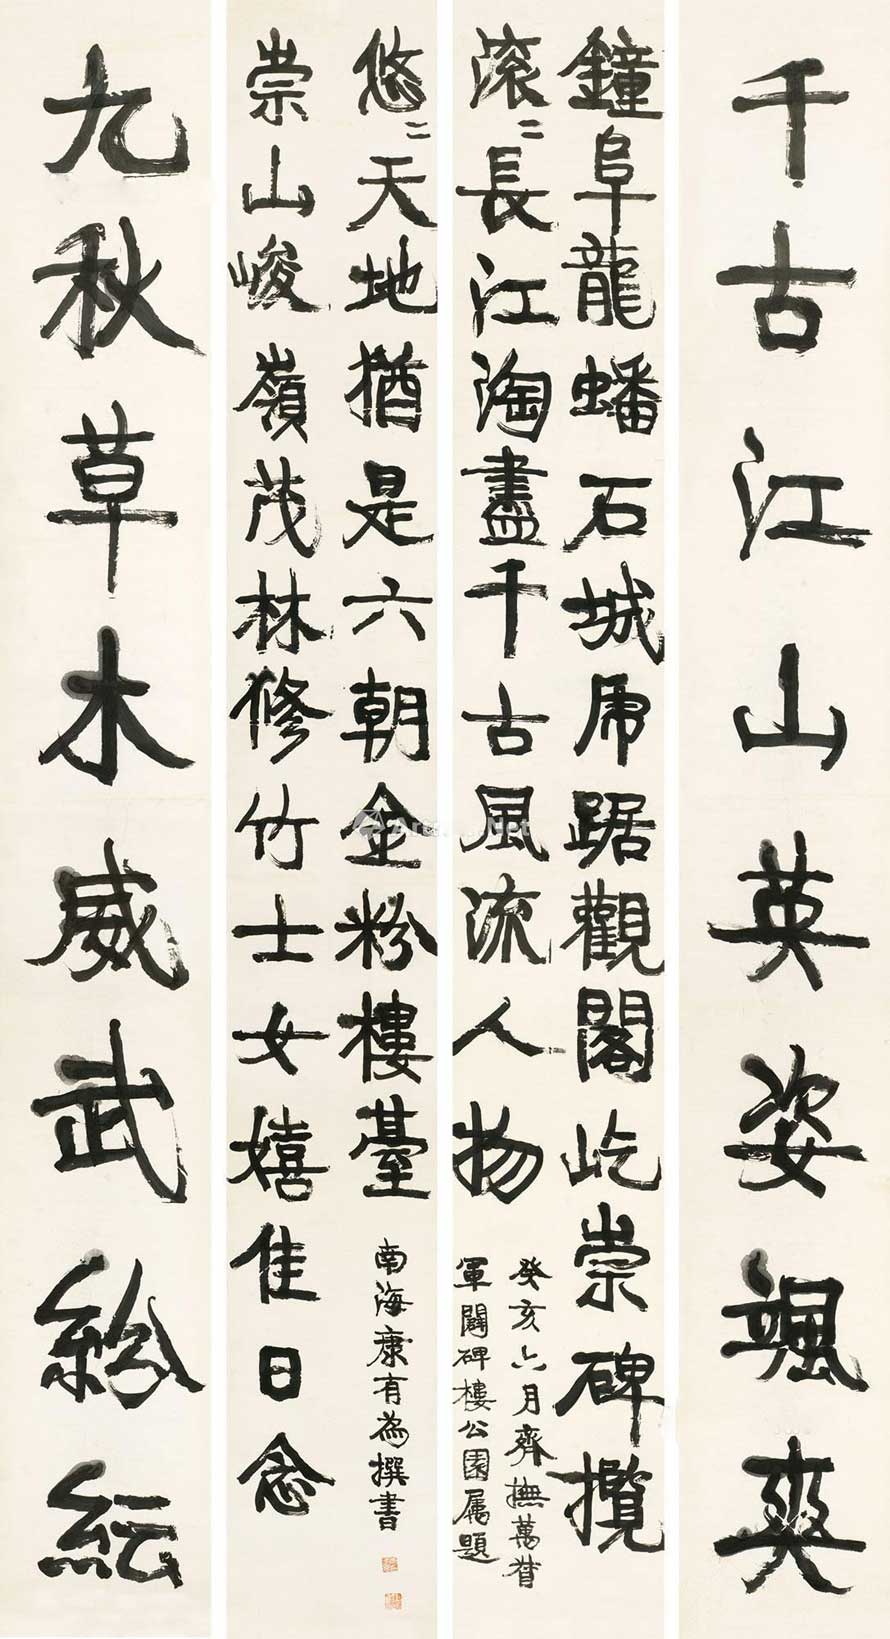 千古江山英姿颯爽
鐘阜龍蟠石城虎踞觀閣屹崇碑攬
滚〻長江淘盡千古風流人物
癸亥六月齊撫萬督
軍闢碑樓公園属題
悠〻天地猶是六朝金粉樓臺
崇山峻嶺茂林修竹士女嬉佳日念
南海康有為撰書
九秋草木威武紛紜